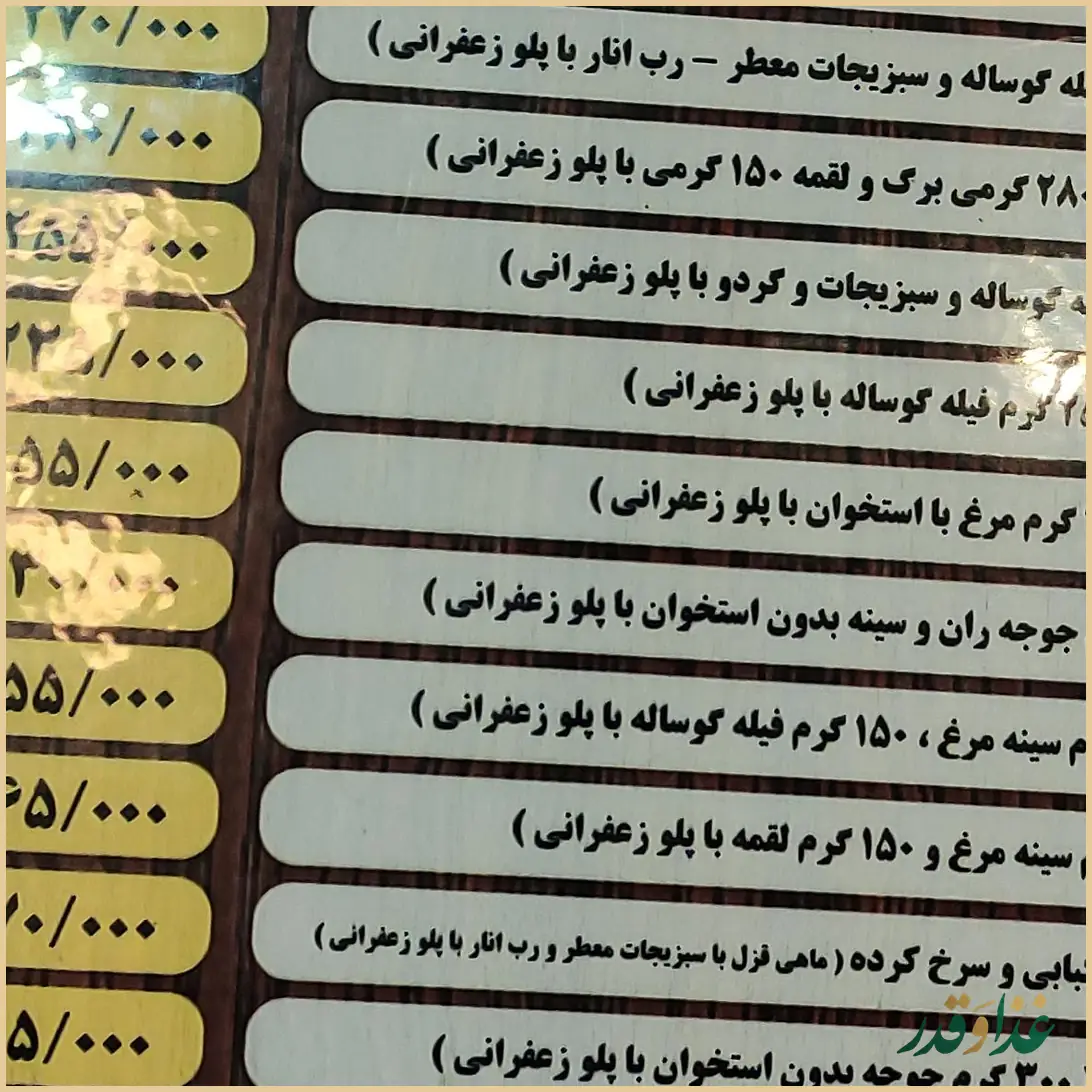 گوساله و سبزیجات معطر – رب انار با پلو زعفرانی ) ۲۷۰/۰۰۰
۲۸۰ گرمی برگ و لقمه ۱۵۰ گرمی با پلو زعفرانی ) /۰۰۰
گوساله و سبزیجات و گردو با پلو زعفرانی ) ۲۵۵/۰۰۰
گرم فیله گوساله با پلو زعفرانی ) /۰۰۰
گرم مرغ با استخوان با پلو زعفرانی ) ۵۵/۰۰۰
جوجه ران و سینه بدون استخوان با پلو زعفرانی )
سینه مرغ ، ۱۵۰ گرم فیله گوساله با پلو زعفرانی ) ۵۵/۰۰۰
سینه مرغ و ۱۵۰ گرم لقمه با پلو زعفرانی ) ۶۵/۰۰۰
و سرخ کرده ( ماهی قزل با سبزیجات معطر و رب انار با پلو زعفرانی ) ۷۰/۰۰۰
۳۰۰ گرم جوجه بدون استخوان با پلو زعفرانی ) ۵/۰۰۰
غذا و قدر